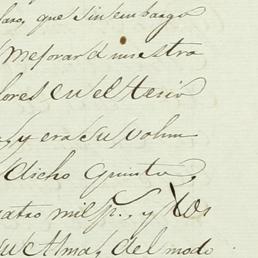 que sin embargo
Mejorar á nuestro
lores en el tercio
y era su volun
dicho Quinto,
uatro mil p.s, y dos
su Alma, del modo